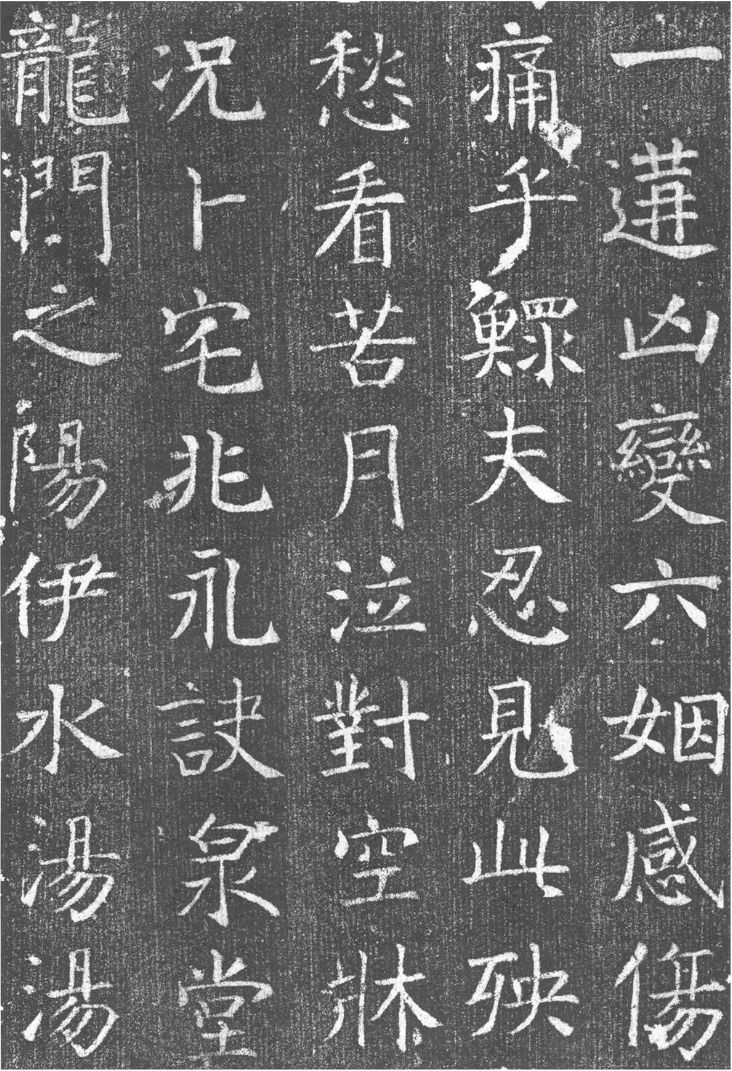 一遘凶變六姻感傷
痛乎鰥夫忍見此殃
愁看苦月泣對空牀
况卜宅兆永訣泉堂
龍門之陽伊水湯湯